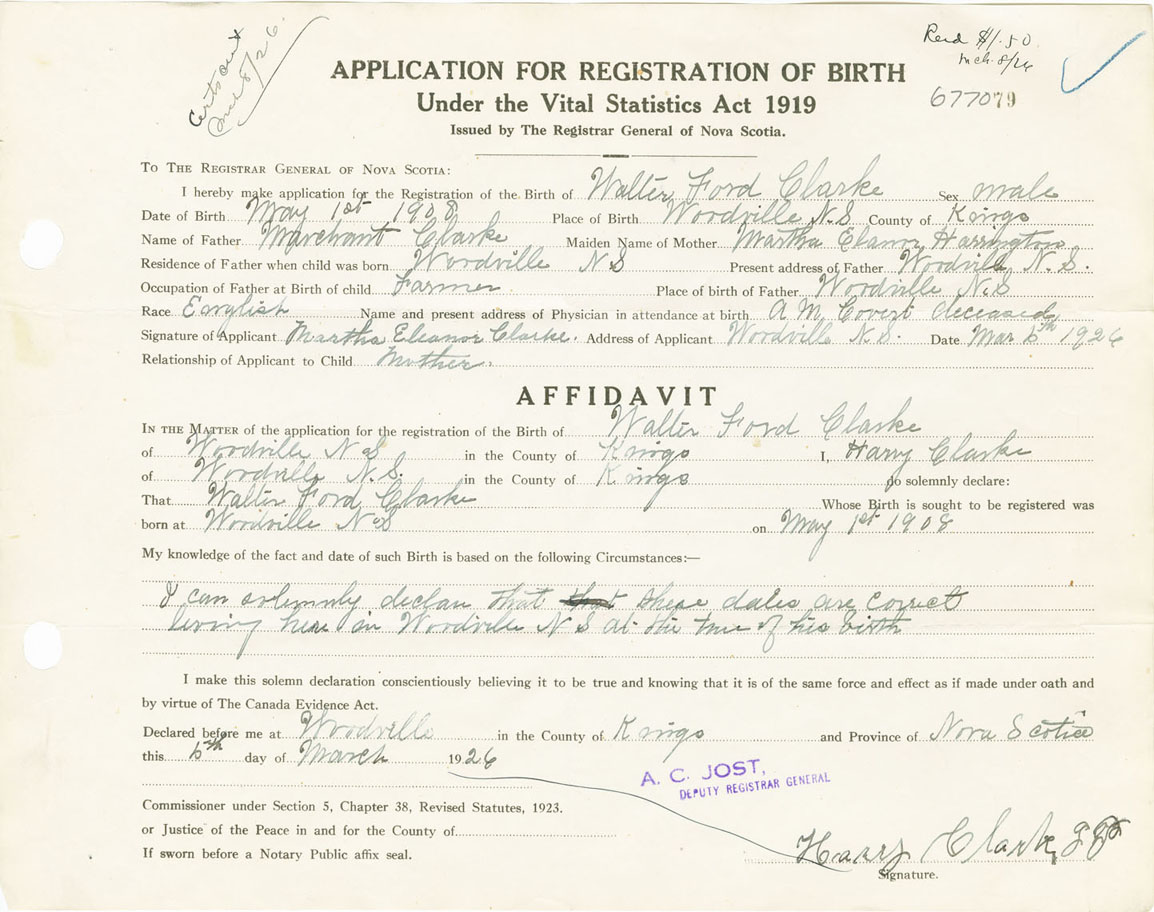 Certs out
mch 8/26.
Recd $1.50.
mch. 8/26
677079
APPLICATION FOR REGISTRATION OF BIRTH
Under the Vital Statistics Act 1919
Issued by The Registrar General of Nova Scotia.
TO THE REGISTRAR GENERAL OF NOVA SCOTIA:
I hereby make application for the Registration of the Birth of Walter Ford Clarke Sex male
Date of Birth May 1st 1908 Place of Birth Woodville N.S County of Kings
Name of Father Marchant Clarke Maiden Name of Mother Martha Elanor Harrington
Residence of Father when child was born Woodville N S Present address of Father Woodville N. S.
Occupation of Father at Birth of child Farmer Place of birth of Father Woodville N.S
Race English Name and present address of Physician in attendance at birth A M Covert deceased
Signature of Applicant Martha Eleanor Clarke. Address of Applicant Woodville N. S. Date Mar 6th 1926
Relationship of Applicant to Child Mother.
AFFIDAVIT
IN THE MATTER of the application for the registration of the Birth of Walter Ford Clarke
of Woodville N S in the County of Kings I, Harry Clarke
of Woodville N. S. in the County of Kings do solemnly declare:
That Walter Ford Clarke Whose Birth is sought to be registered was
born at Woodville N S on May 1st 1908
My knowledge of the fact and date of such Birth is based on the following Circumstances:—
I can solemnly declare that these dates are correct
living here in Woodville N S at the time of his birth
I make this solemn declaration conscientiously believing it to be true and knowing that it is of the same force and effect as if made under oath and
by virtue of The Canada Evidence Act.
Declared before me at Woodville in the County of Kings and Province of Nova Scotia
this 6th day of March 1926
A. C. JOST,
DEPUTY REGISTRAR GENERAL
Commissioner under Section 5, Chapter 38, Revised Statutes, 1923.
or Justice of the Peace in and for the County of
If sworn before a Notary Public affix seal.
Harry Clarke, J P
Signature.